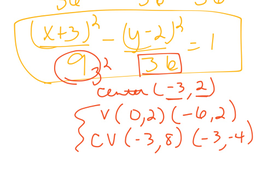 (x+3)² - (y-2)² = 1
9 3² 36
center (-3, 2)
V (0,2) (-6,2)
CV (-3,8) (-3,-4)